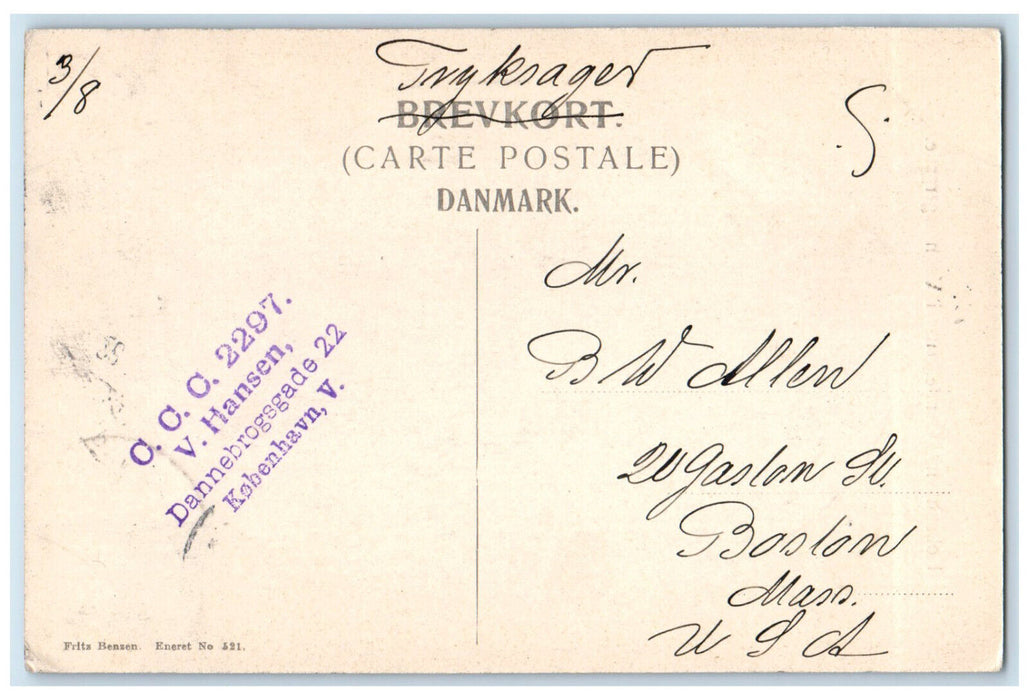 3/8
Tryksager
BREVKORT.
(CARTE POSTALE)
DANMARK.
Mr.
B W Allen
20 Gaston St.
Boston
Mass.
U S A
C. C. C. 2297.
V. Hansen,
Dannebrogsgade 22
København, V.
Fritz Benzen. Eneret No 521.